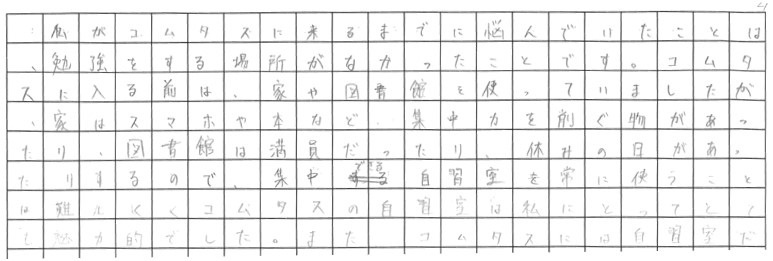 私がコムタスに来るまでに悩んでいたことは
、勉強をする場所がなかったことです。コムタ
スに入る前は、家や図書館を使っていましたが
、家はスマホや本など、集中力を削ぐ物があっ
たり、図書館は満員だったり、休みの日があっ
たりするので、集中できる自習室を常に使うこと
は難しくコムタスの自習室は私にとってとて
も魅力的でした。また、コムタスには自習室だ